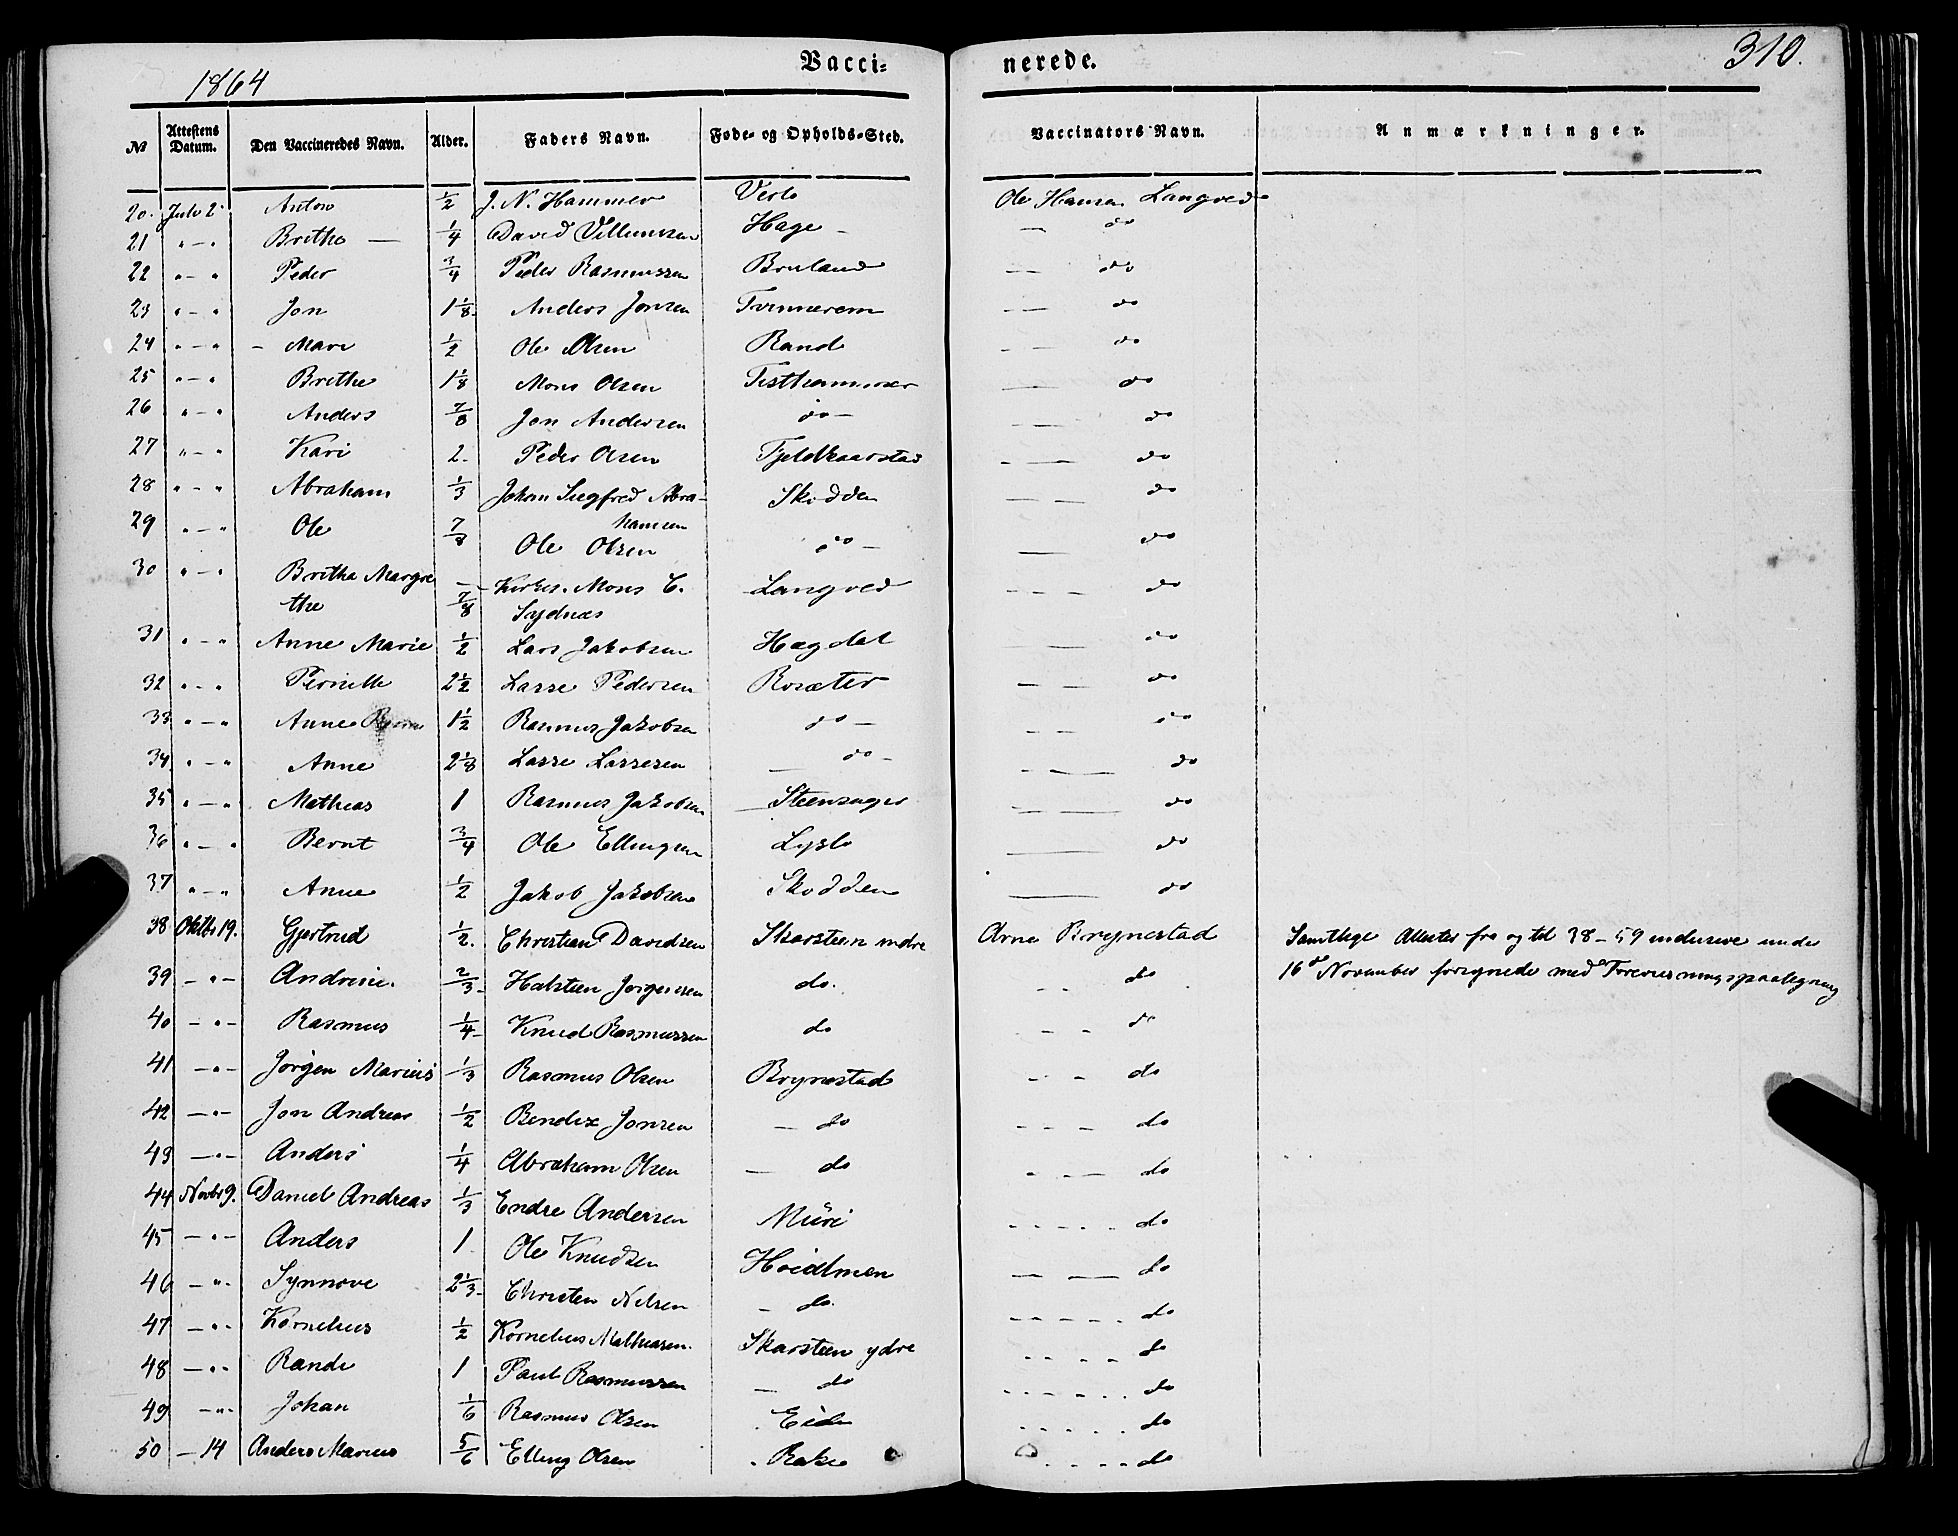 1864
Vacci-
nerede.
310.
№ Attestens Datum. Den Vaccineredes Navn. Alder. Faders Navn. Føde- og Opholds-Sted. Vaccinators Navn. Anmærkninger.
20. Juli 2 Anton 1/2 J. N. Hammer Ole Hansen Langved
21 " — " Brithe — 1/4 David Villumsen Hage — do
22 " — " Peder 3/4 Peder Rasmussen Bruland — do
23 " — " Jon 1 1/8 Anders Jonsen Tvinnerem — do
24 " — " Mari 1/2 Ole Olsen Rand — do
25 " — " Brithe 1 1/8 Mons Olsen Tisthammer — do
26 " — " Anders 7/8 Jon Andersen do — — do
27 " — " Kari 2 Peder Olsen — do
28 " — " Abraham 1/3 Johan Siegfred Abra- Skodden — do
hamsen
29 " — " Ole 7/8 Ole Olsen do — — do
30 " — " Britha Margre 7/8 Kirkes. Mons C. Langved — do
the Sydnæs
31 " — " Anne Marie 1/2 Lars Jakobsen Hagdal — do
32 " — " Pernille 2 1/2 Lasse Pedersen Roræter — do
33 " — " Anne 1 1/2 Rasmus Jakobsen do — — do
34 " — " Anne 2 1/8 Lasse Lassesen — do — — do
35 " — " Mathias 1 Rasmus Jakobsen Steensager — do
36 " — " Bernt 3/4 Ole Ellingsen Lyslo — do
37 " — " Anne 1/2 Jakob Jakobsen Skodden — do
38 Oktbr 19. Gjertrud 1/2. Christian Davidsen Skarsteen indre Arne Brynestad Samtlige Attester fra og til 38–59 inclusive under
39 — " — Andrine. 2/3 Halsteen Jørgensen do. — do 16de November forsynede med Forevisningspaategning
40 — " — Rasmus 1/4 Knud Rasmussen do — do
41 — " — Jørgen Marius 1/3 Rasmus Olsen Brynestad — do
42 — " — Jon Andreas 1/2 Bendix Jonsen — do — do
43 — " — Anders 1/4 Abraham Olsen — do — do
44 Novbr 9. Daniel Andreas 1/3 Endre Andersen Müri — do
45 — " — Anders 1 Ole Knudsen — do
46 — " — Synnøve 2 1/3 Christen Nilsen — do. — do
47 — " — Kornelius 1/2 Kornelius Mathiasen. Skarsteen ydre — do
48 — " — Rande 1 Paul Rasmussen — do — do
49 — " — Johan 1/6 Rasmus Olsen Eide — do
50 — 14 Anders Marius 5/6 Elling Olsen Rake — do